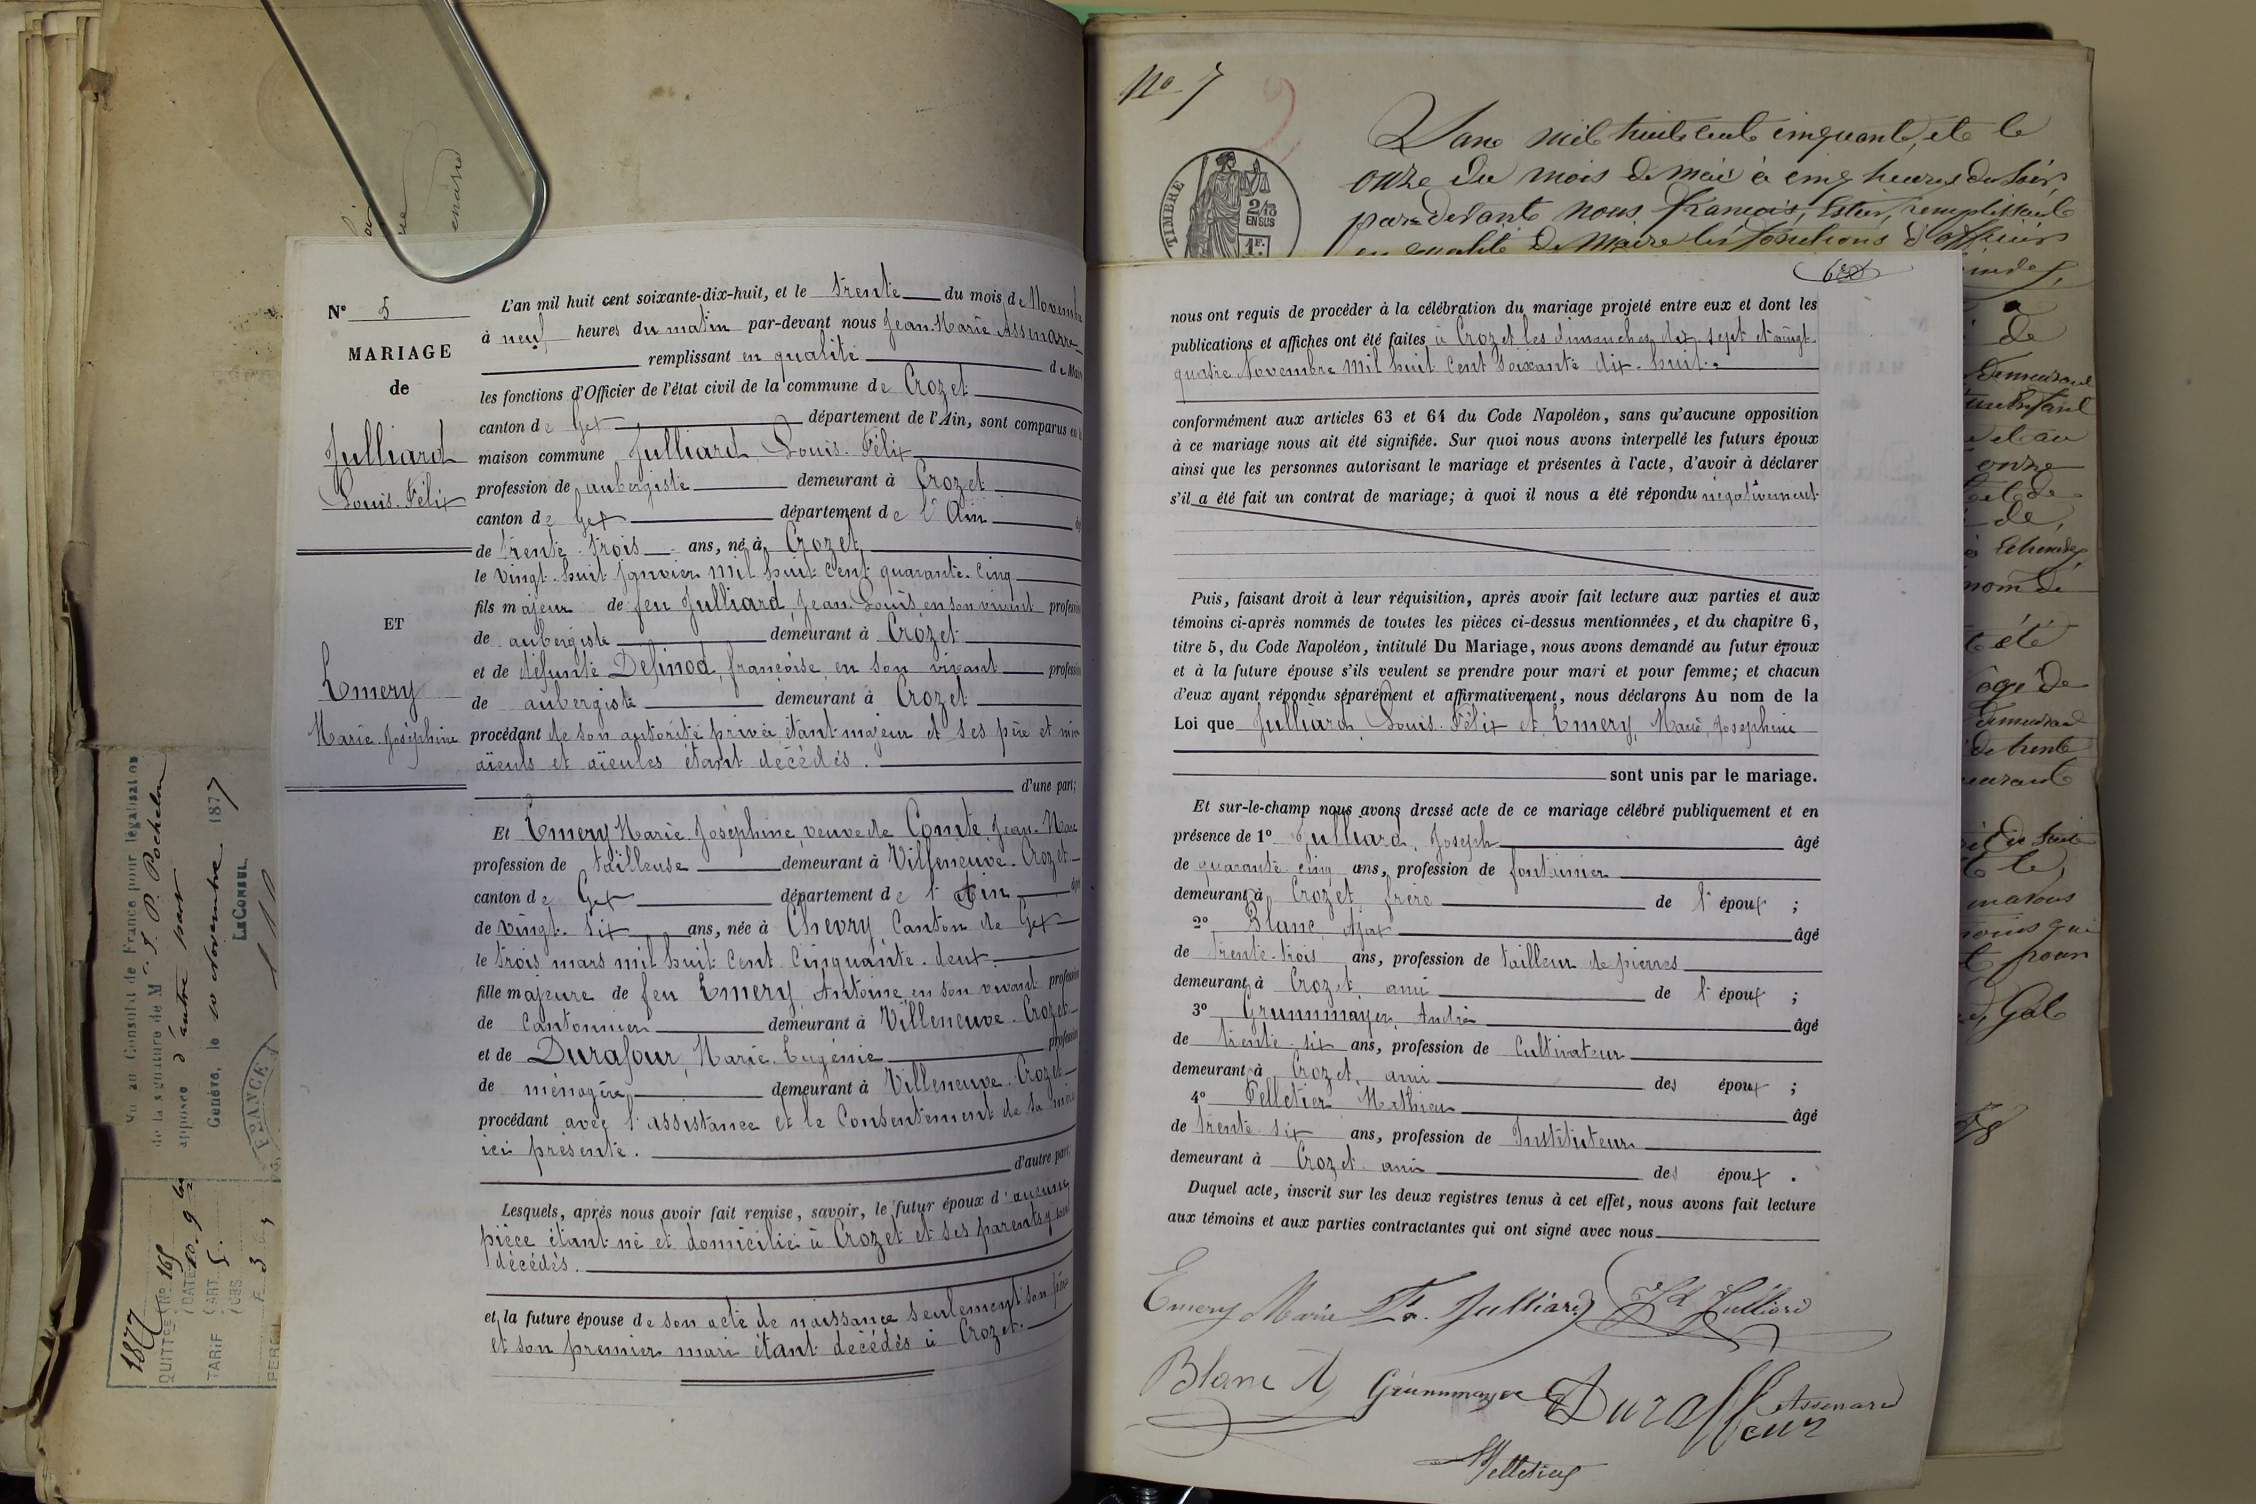 N° 5
MARIAGE
de
Julliard
Louis-Félix
ET
Emery
Marie Joséphine
L'an mil huit cent soixante-dix-huit, et le trente du mois de Novembre
à neuf heures du matin par-devant nous Jean-Marie Assenare
remplissant en qualité de Maire
les fonctions d'Officier de l'état civil de la commune de Crozet
canton de Gex département de l'Ain, sont comparus en la
maison commune Julliard Louis-Félix
profession de aubergiste demeurant à Crozet
canton de Gex département de l'Ain âgé
de trente-trois ans, né à Crozet
le vingt-huit janvier mil huit cent quarante-cinq
fils majeur de feu Julliard, Jean-Louis, en son vivant profession
de aubergiste demeurant à Crozet
et de défunte Delinod, françoise en son vivant profession
de aubergiste demeurant à Crozet
procédant de son autorité privée étant majeur et ses père et mère
aïeuls et aïeules étant décédés.
d'une part;
Et Emery Marie-Joséphine, veuve de Comte Jean-Marie
profession de tailleuse demeurant à Villeneuve-Crozet
canton de Gex département de l'Ain âgée
de vingt-six ans, née à Chevry Canton de Gex
le trois mars mil huit Cent Cinquante-deux
fille majeure de feu Emery Antoine en son vivant profession
de Cantonnier demeurant à Villeneuve-Crozet
et de Durafour, Marie-Eugénie profession
de ménagère demeurant à Villeneuve-Crozet
procédant avec l'assistance et le Consentement de sa mère
ici présente.
d'autre part;
Lesquels, après nous avoir fait remise, savoir, le futur époux d'aucune
pièce étant né et domicilié à Crozet et ses parents y sont
décédés.
et la future épouse de son acte de naissance seulement son père
et son premier mari étant décédés à Crozet.
Vu au Consulat de France pour légalisation
de la signature de Mr. J. P. Pochelon
apposée d'autre part
Genève, le 10 Novembre 1877
Le Consul,
FRANCE
1877
QUITTce No 165
DATE 10. 9
TARIF ART. 5.
No 7
L'an mil huit cent cinquante, et le
onze du mois de mai à cinq heures du soir,
par devant nous françois, remplissant
en qualité de Maire les fonctions d'officier
TIMBRE
2/10
EN SUS
1F.
nous ont requis de procéder à la célébration du mariage projeté entre eux et dont les
publications et affiches ont été faites à Crozet les dimanches dix-sept et vingt-
quatre Novembre mil huit cent soixante dix-huit.
conformément aux articles 63 et 64 du Code Napoléon, sans qu'aucune opposition
à ce mariage nous ait été signifiée. Sur quoi nous avons interpellé les futurs époux
ainsi que les personnes autorisant le mariage et présentes à l'acte, d'avoir à déclarer
s'il a été fait un contrat de mariage; à quoi il nous a été répondu négativement.
Puis, faisant droit à leur réquisition, après avoir fait lecture aux parties et aux
témoins ci-après nommés de toutes les pièces ci-dessus mentionnées, et du chapitre 6,
titre 5, du Code Napoléon, intitulé Du Mariage, nous avons demandé au futur époux
et à la future épouse s'ils veulent se prendre pour mari et pour femme; et chacun
d'eux ayant répondu séparément et affirmativement, nous déclarons Au nom de la
Loi que Julliard, Louis-Félix et Emery, Marie, Joséphine
sont unis par le mariage.
Et sur-le-champ nous avons dressé acte de ce mariage célébré publiquement et en
présence de 1° Julliard, Joseph âgé
de quarante cinq ans, profession de fontainier
demeurant à Crozet, frère de l'époux ;
2° Blanc, Ajax âgé
de trente-trois ans, profession de tailleur de pierres
demeurant à Crozet, ami de l'époux ;
3° Grunnmayer, André âgé
de trente-six ans, profession de Cultivateur
demeurant à Crozet, ami des époux ;
4° Pelletier Mathieu âgé
de trente six ans, profession de Instituteur
demeurant à Crozet ami des époux .
Duquel acte, inscrit sur les deux registres tenus à cet effet, nous avons fait lecture
aux témoins et aux parties contractantes qui ont signé avec nous
Emery Marie Julliard Jh Julliard
Blanc A Grunnmayer Duraffour Assenare
Pelletier